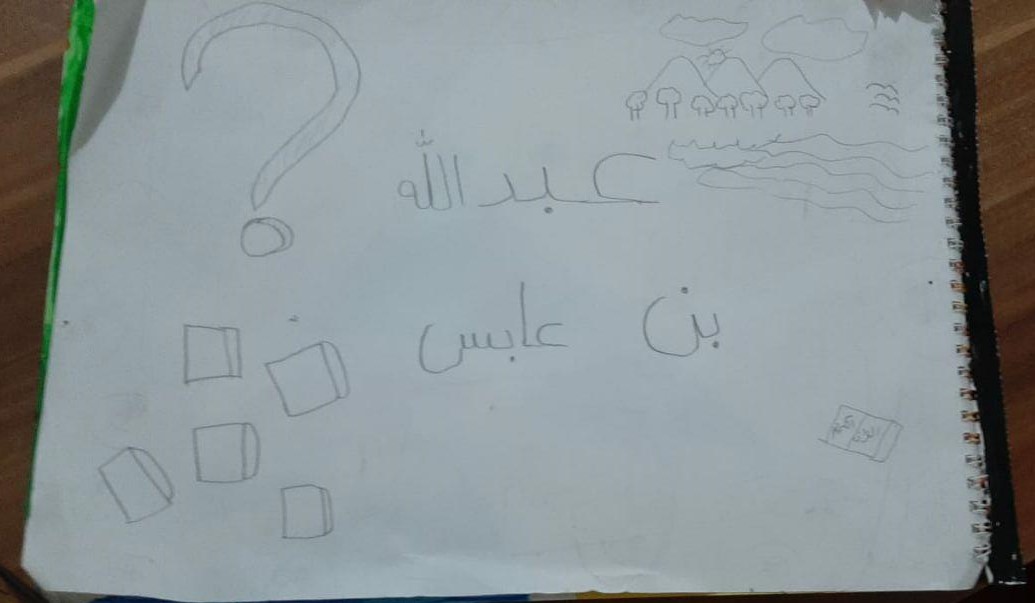 عبدالله
بن عابس
القرآن الكريم